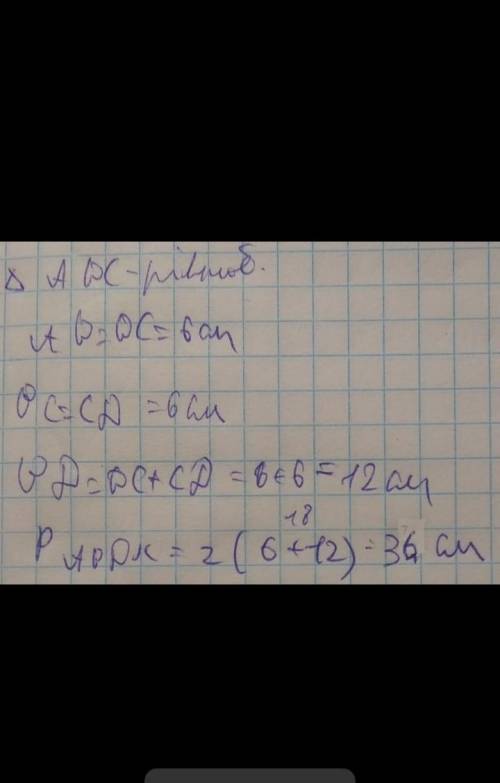 Δ ABC - рівноб.
AB = BC = 6 см
BC = CD = 6 см
BD = BC + CD = 6 + 6 = 12 см
18
P ABDK = 2 ( 6 + 12 ) = 36 см